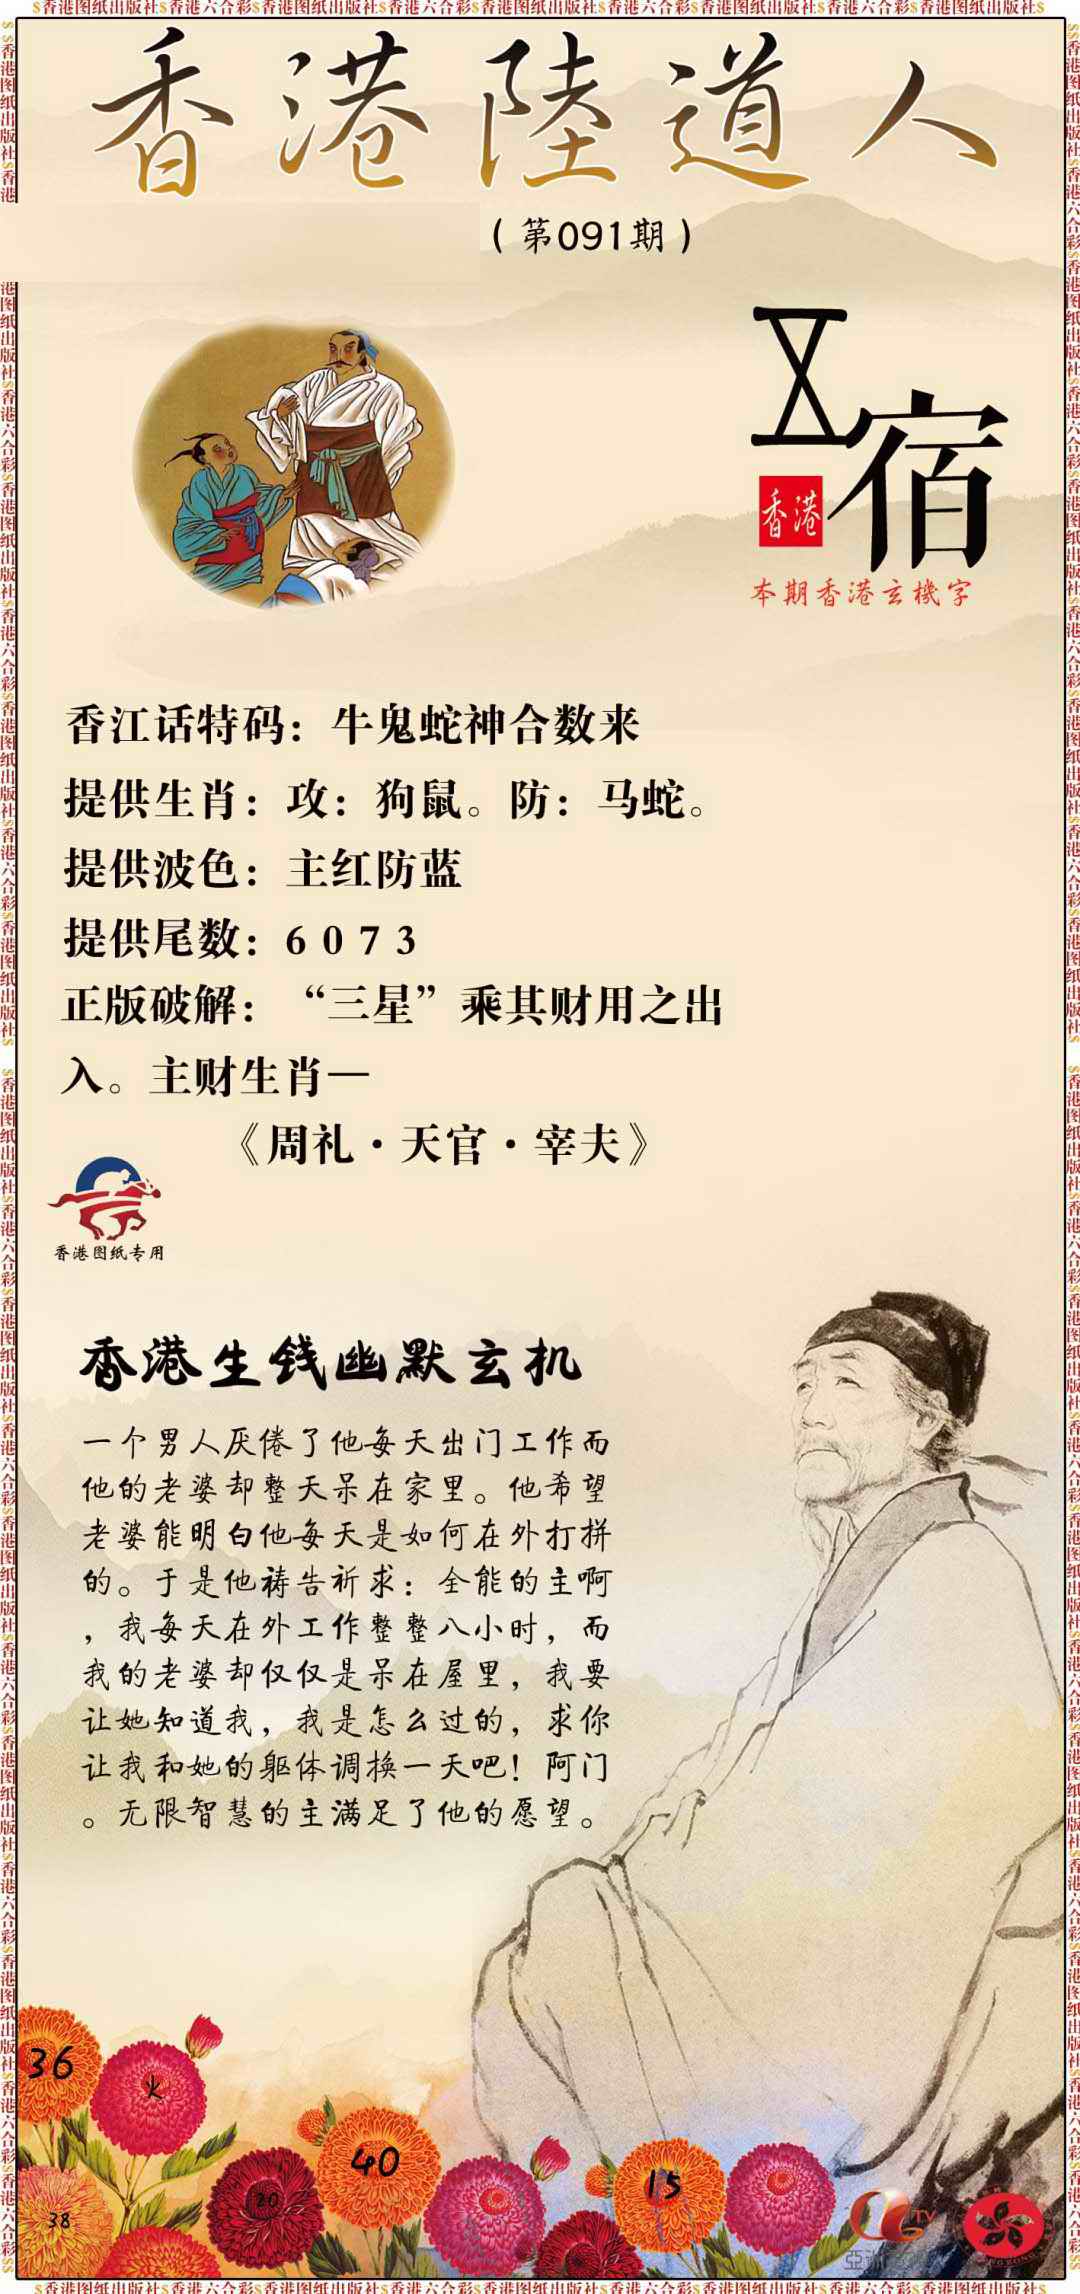 $香港图纸出版社$香港六合彩$香港图纸出版社$香港六合彩$香港图纸出版社$香港六合彩$香港图纸出版社$
香港陸道人
（第091期）
宿
香港
本期香港玄機字
香江话特码：牛鬼蛇神合数来
提供生肖：攻：狗鼠。防：马蛇。
提供波色：主红防蓝
提供尾数：6 0 7 3
正版破解：“三星”乘其财用之出
入。主财生肖—
《周礼·天官·宰夫》
香港图纸专用
香港生钱幽默玄机
一个男人厌倦了他每天出门工作而
他的老婆却整天呆在家里。他希望
老婆能明白他每天是如何在外打拼
的。于是他祷告祈求：全能的主啊
，我每天在外工作整整八小时，而
我的老婆却仅仅是呆在屋里，我要
让她知道我，我是怎么过的，求你
让我和她的躯体调换一天吧！阿门
。无限智慧的主满足了他的愿望。
36
火
40
15
20
38
TV
$香港图纸出版社$香港六合彩$香港图纸出版社$香港六合彩$香港图纸出版社$香港六合彩$香港图纸出版社$